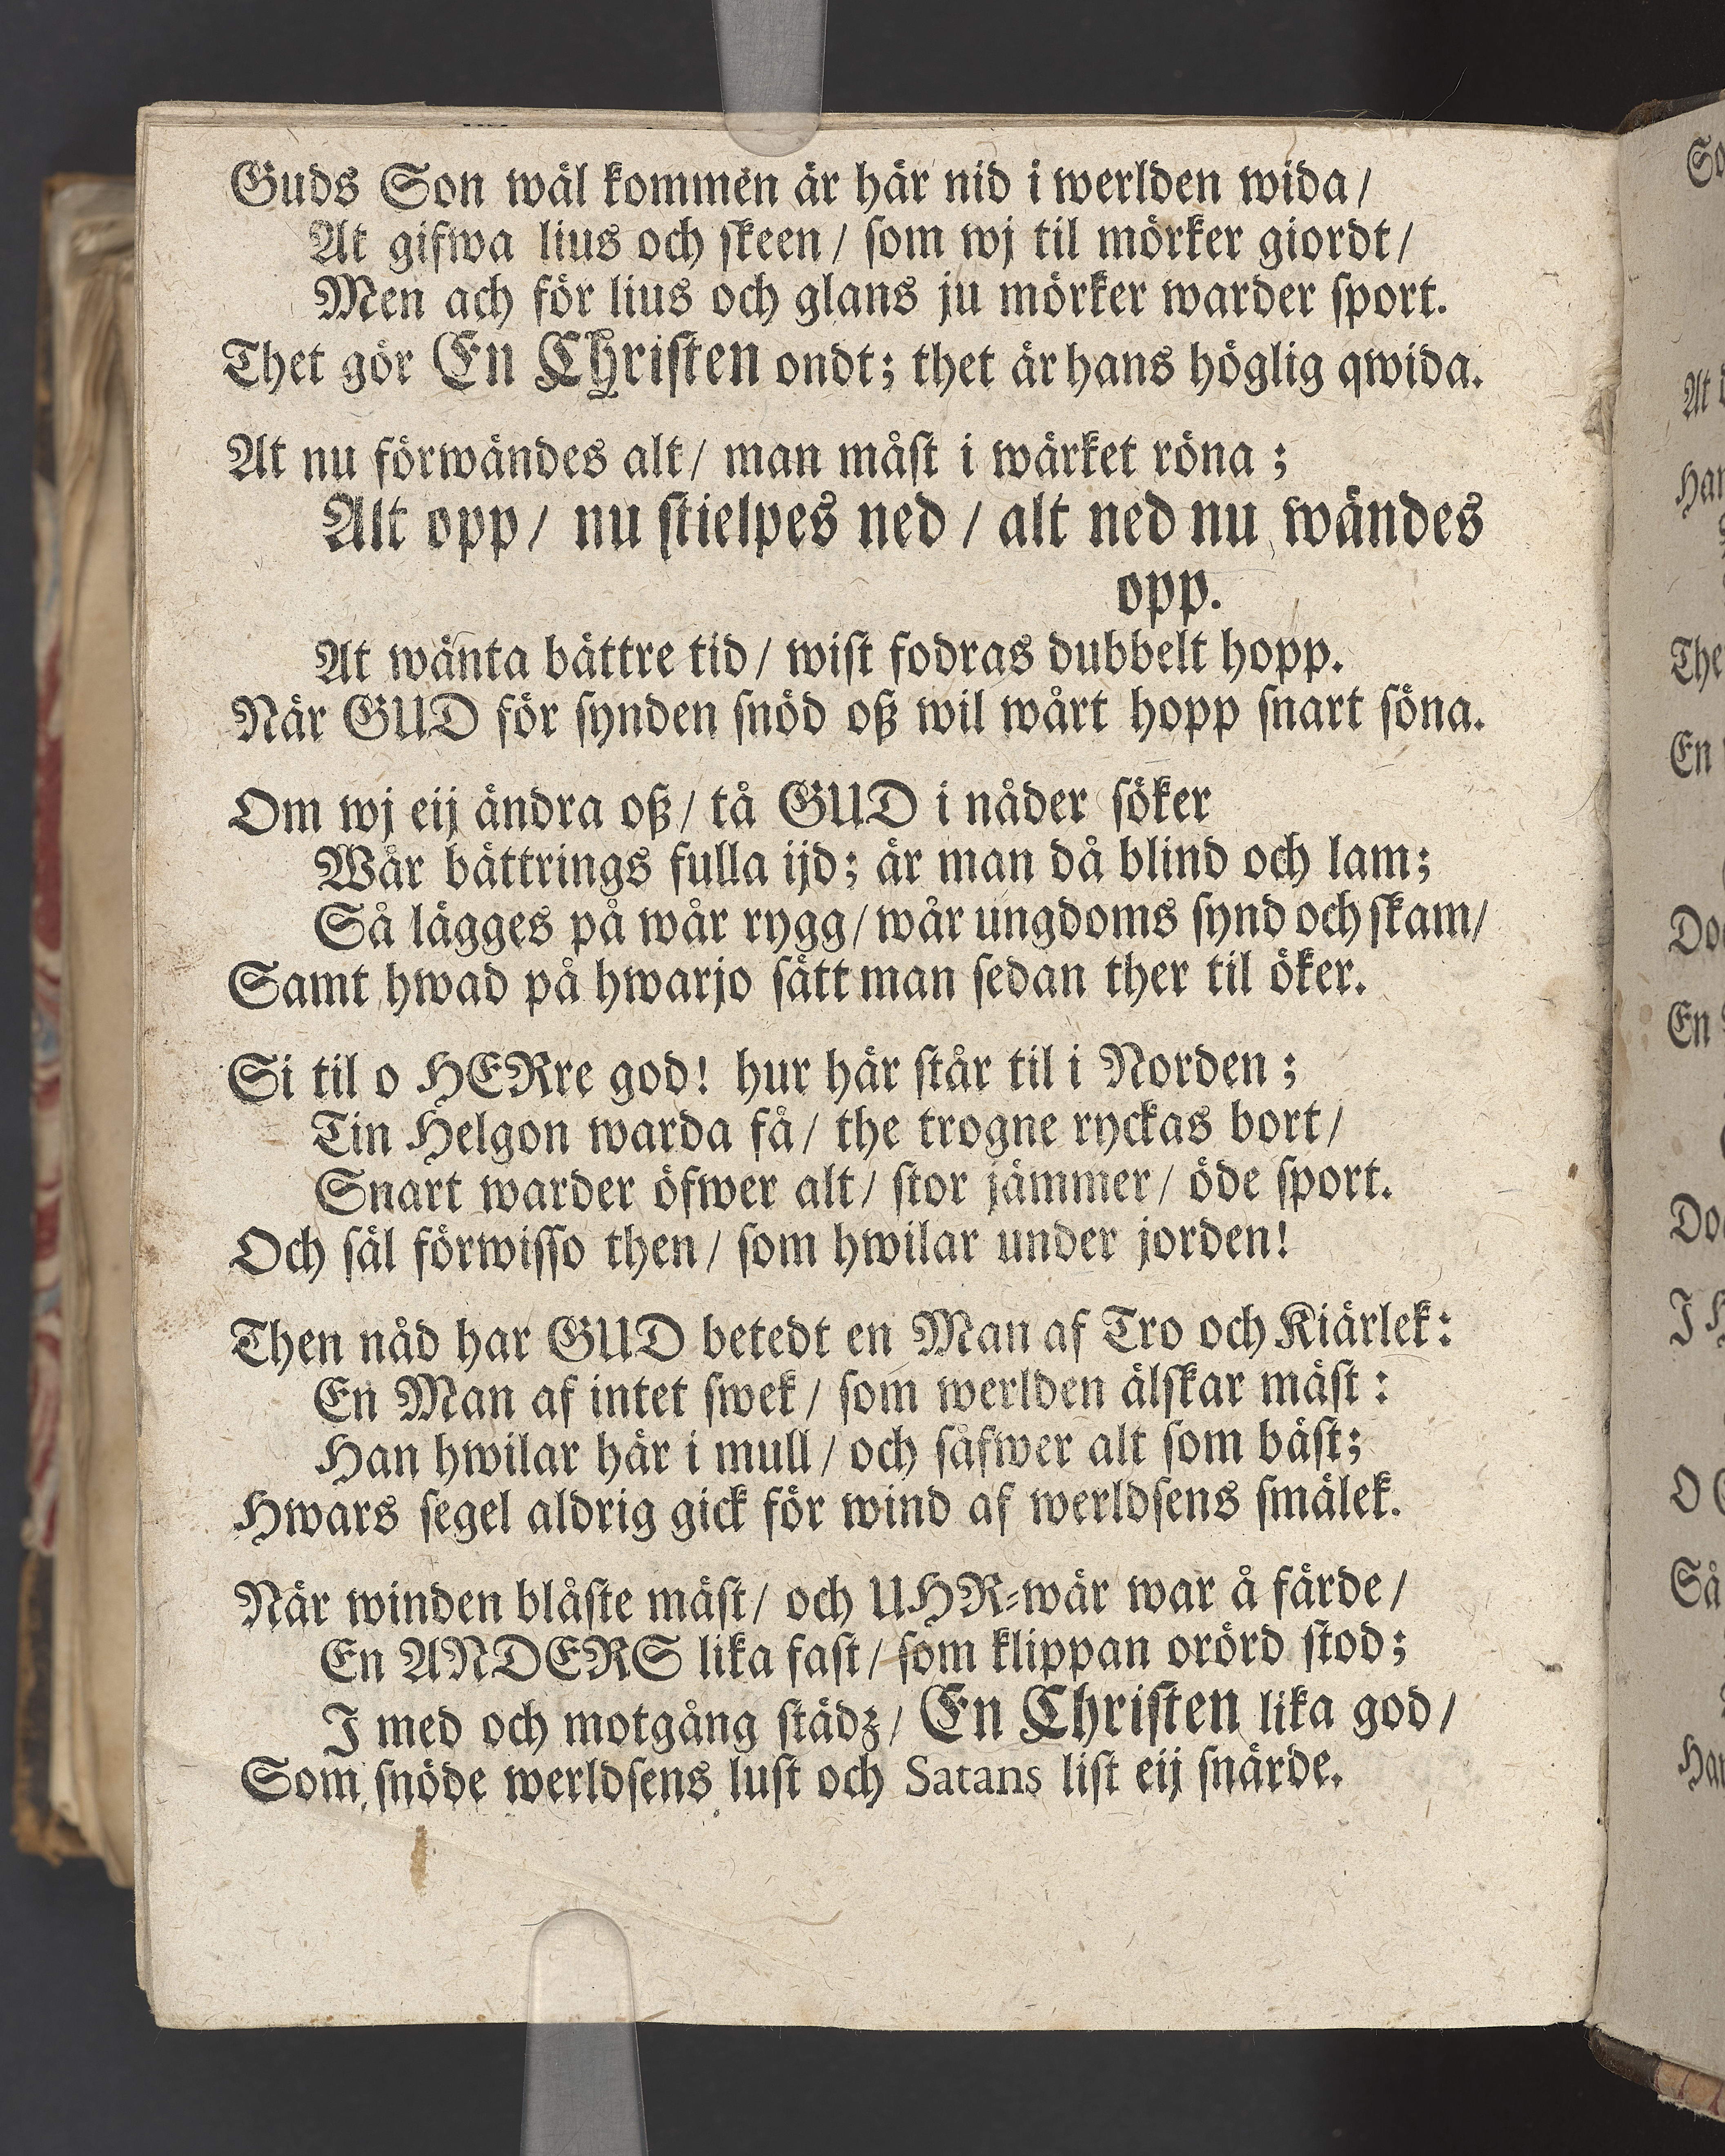 Guds Son wäl kommen är här nid i werlden wida/
At gifwa lius och skeen/ som wj til mörker giordt/
Men ach för lius och glans ju mörker warder sport.
Thet gör En Christen ondt; thet är hans höglig qwida.
At nu förwändes alt/ man måst i wärket röna;
Alt opp/ nu stielpes ned/ alt ned nu wändes
opp.
At wänta bättre tid/ wist fodras dubbelt hopp.
När GUD för synden snöd oß wil wårt hopp snart söna.
Om wj eij ändra oß/ tå GUD i nåder söker
Wår bättrings fulla ijd; är man då blind och lam;
Så lägges på wår rygg/ wår ungdoms synd och skam/
Samt hwad på hwarjo sätt man sedan ther til öker.
Si til o HERre god! hur här står til i Norden;
Tin Helgon warda få/ the trogne ryckas bort/
Snart warder öfwer alt/ stor jämmer/ öde sport.
Och säl förwisso then/ som hwilar under jorden!
Then nåd har GUD betedt en Man af Tro och Kiärlek:
En Man af intet swek/ som werlden älskar mäst:
Han hwilar här i mull/ och såfwer alt som bäst;
Hwars segel aldrig gick för wind af werldsens smälek.
När winden blåste mäst/ och UHR-wär war å färde/
En ANDERS lika fast/ som klippan orörd stod;
I med och motgång städz/ En Christen lika god/
Som snöde werldsens lust och Satans list eij snärde.